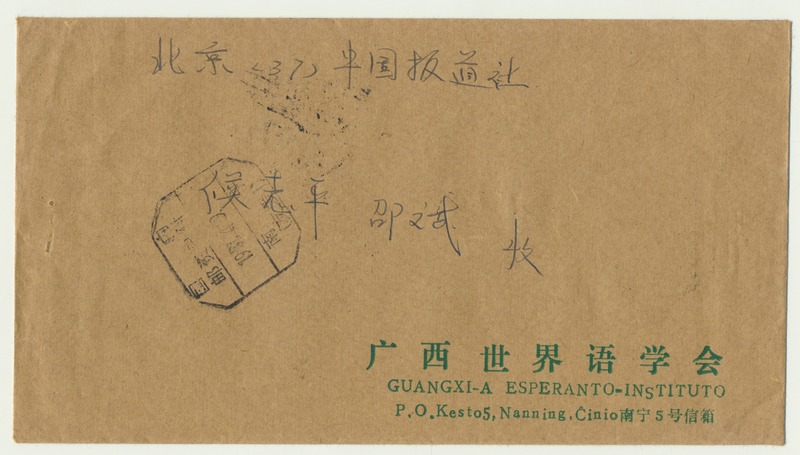 北京(37)中国报道社
侯志平 邵文斌
收
广西世界语学会
GUANGXI-A ESPERANTO-INSTITUTO
P.O.Kesto5,Nanning,Ĉinio南宁5号信箱